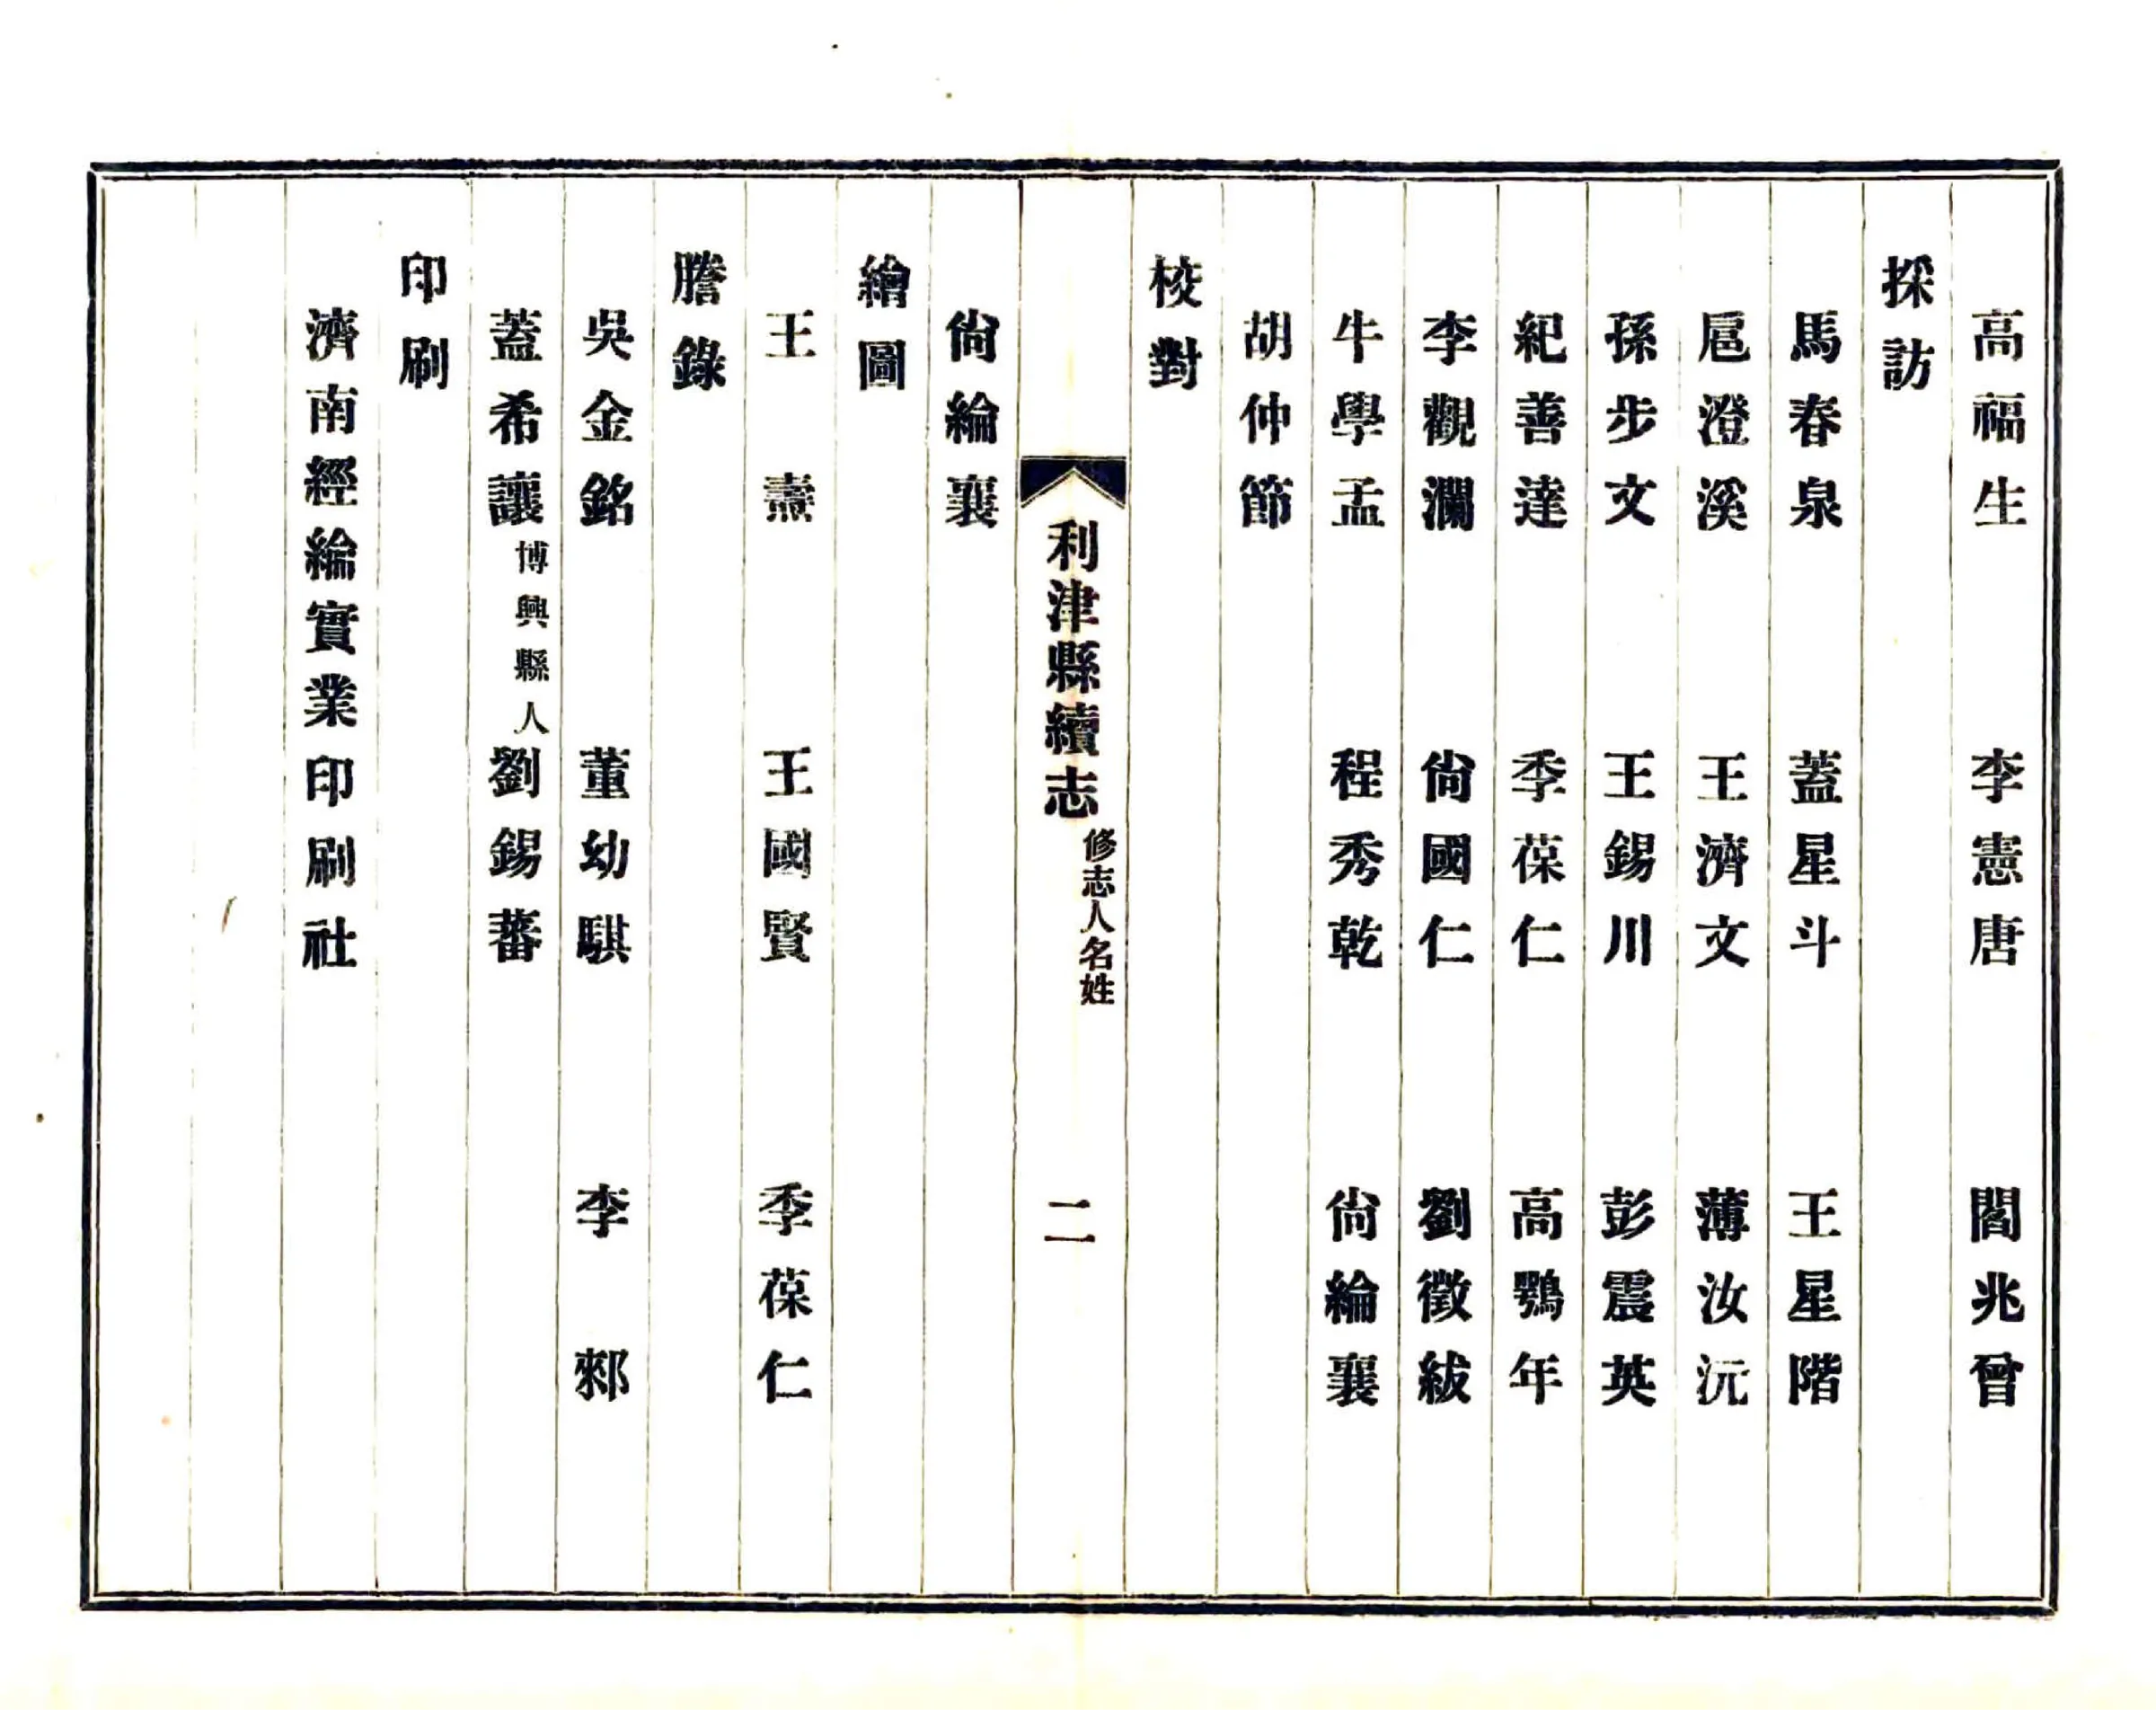 高福生　李憲唐　閻兆曾
採訪
馬春泉　蓋星斗　王星階
扈澄溪　王濟文　薄汝沅
孫步文　王錫川　彭震英
紀善達　季葆仁　高鶚年
李觀瀾　尙國仁　劉徵紱
牛學孟　程秀乾　尙綸襄
胡仲節
校對
利津縣續志　修志人名姓　二
尙綸襄
繪圖
王　燾　王國賢　季葆仁
謄錄
吳金銘　董幼騏　李　邾
蓋希讓博興縣人　劉錫蕃
印刷
濟南經綸實業印刷社